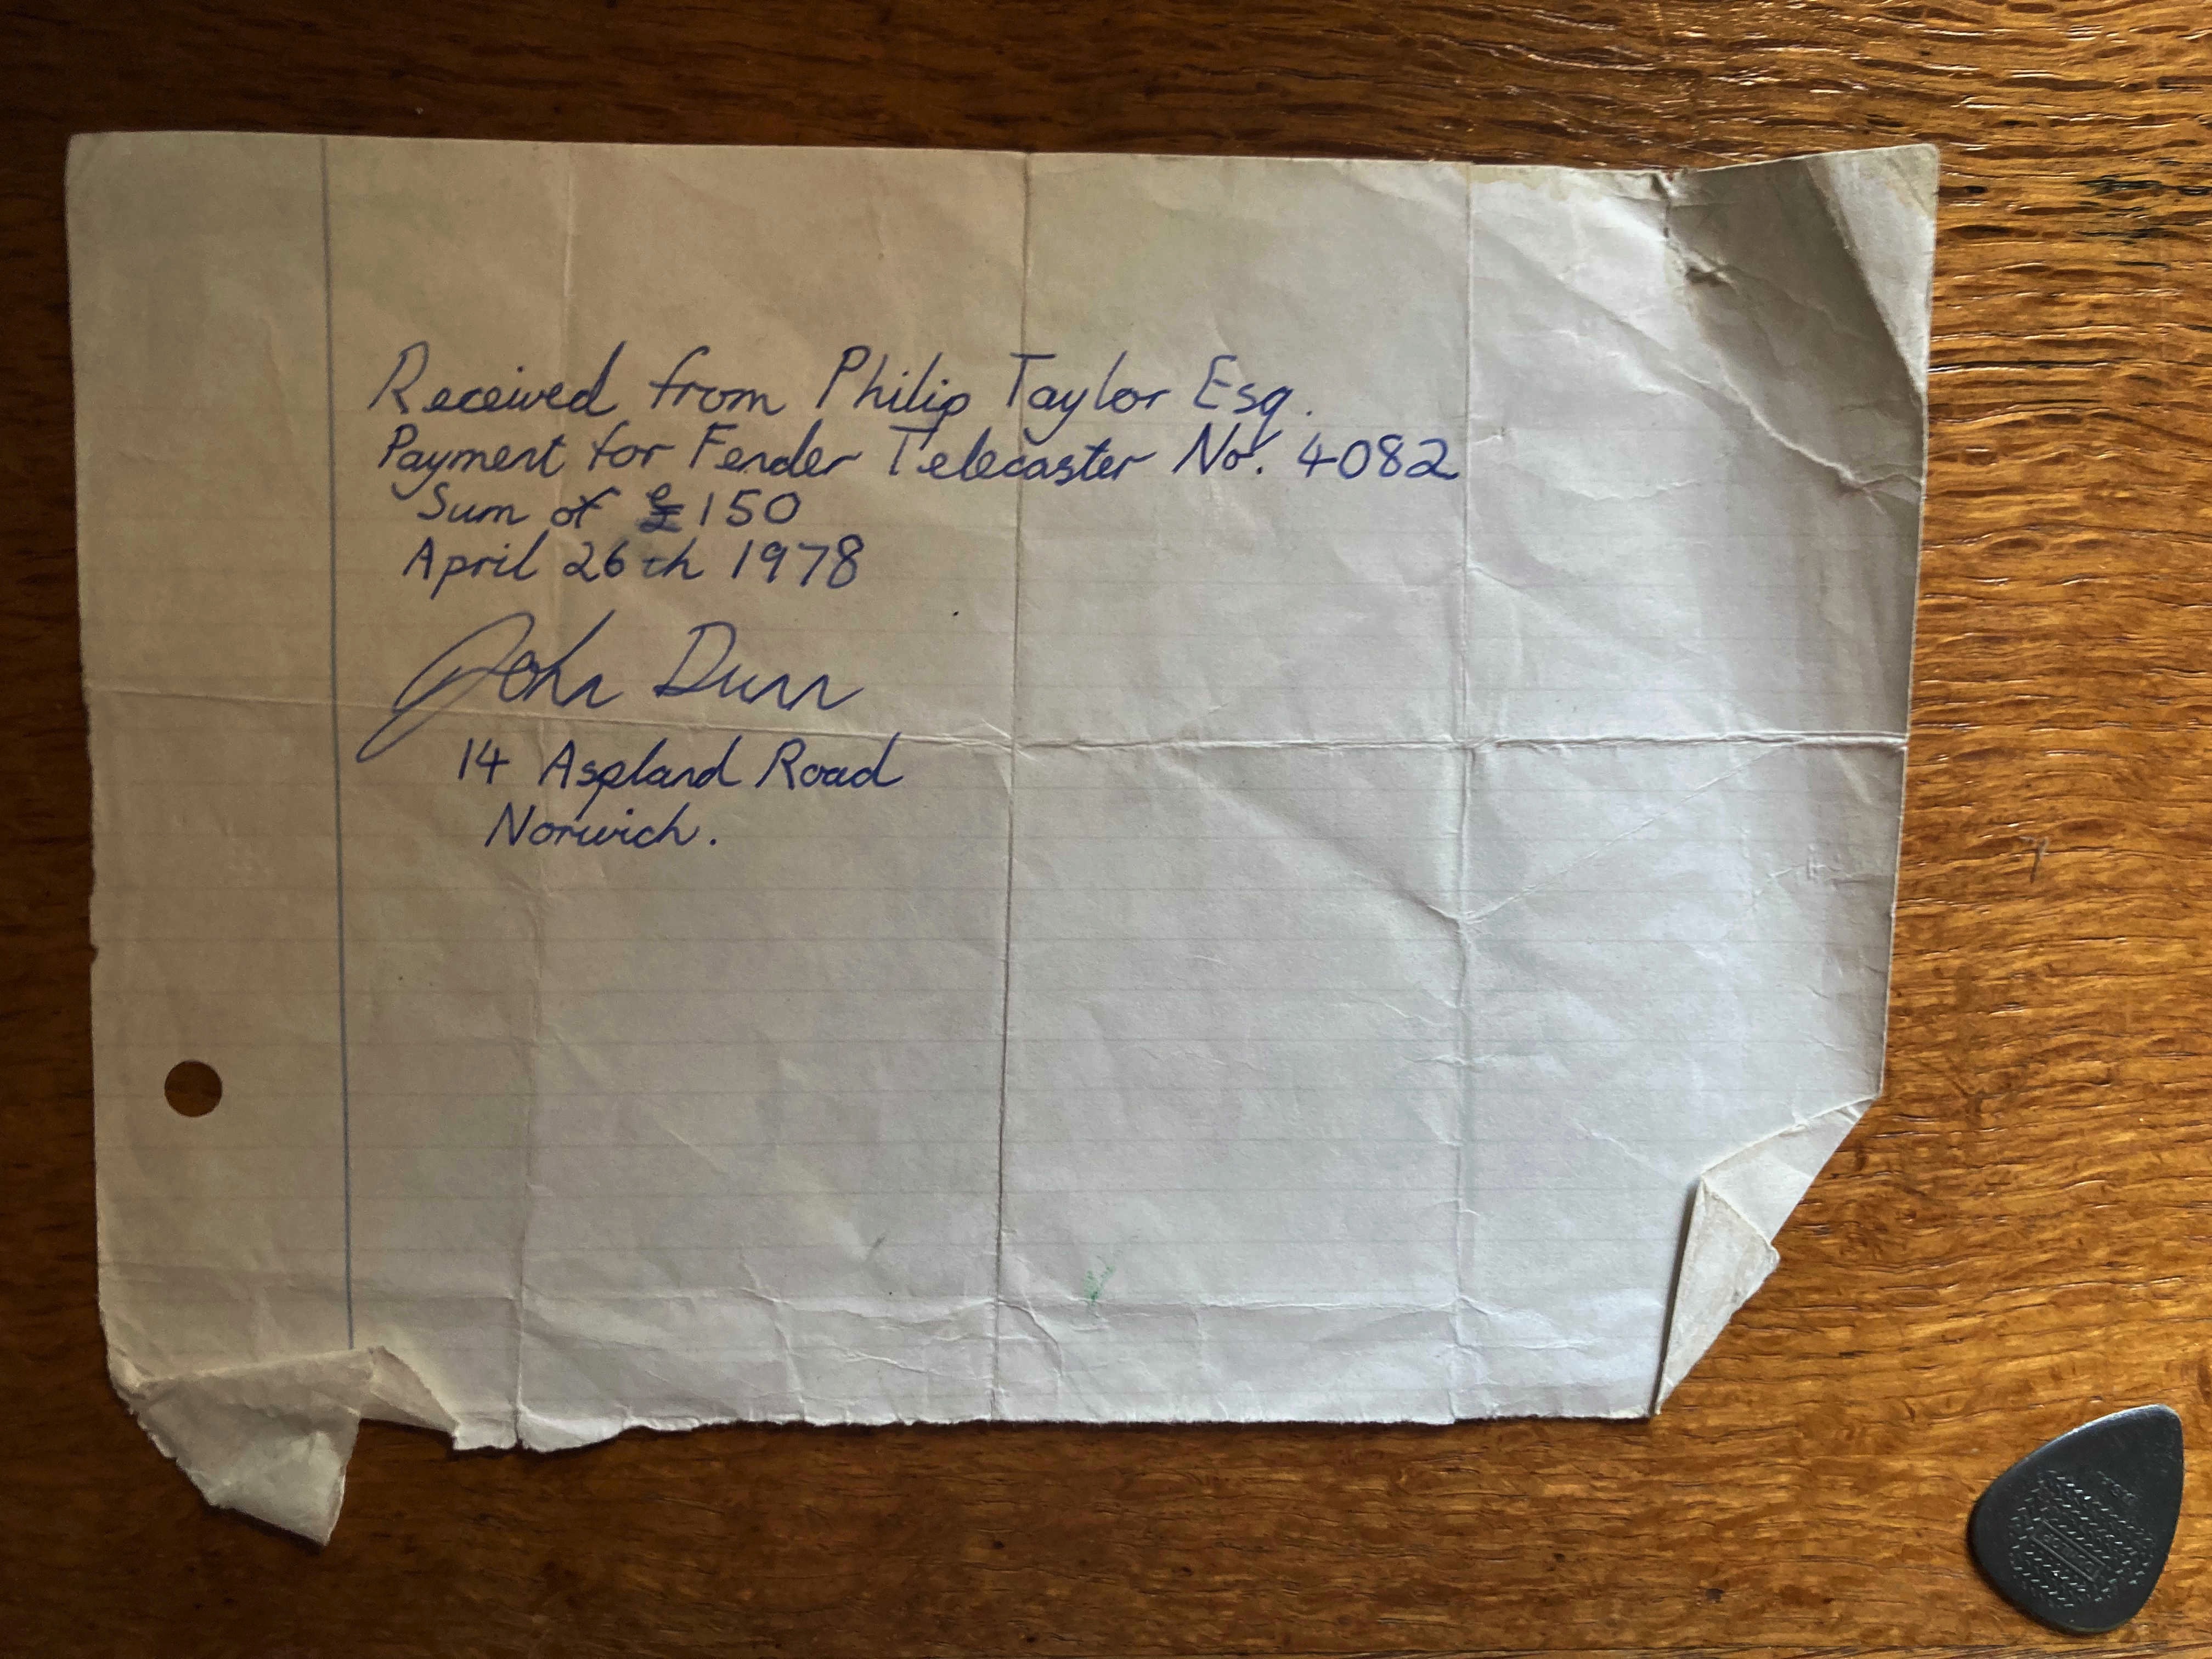 Received from Philip Taylor Esq.
Payment for Fender Telecaster No. 4082
Sum of £150
April 26th 1978
John Dunn
14 Aspland Road
Norwich.